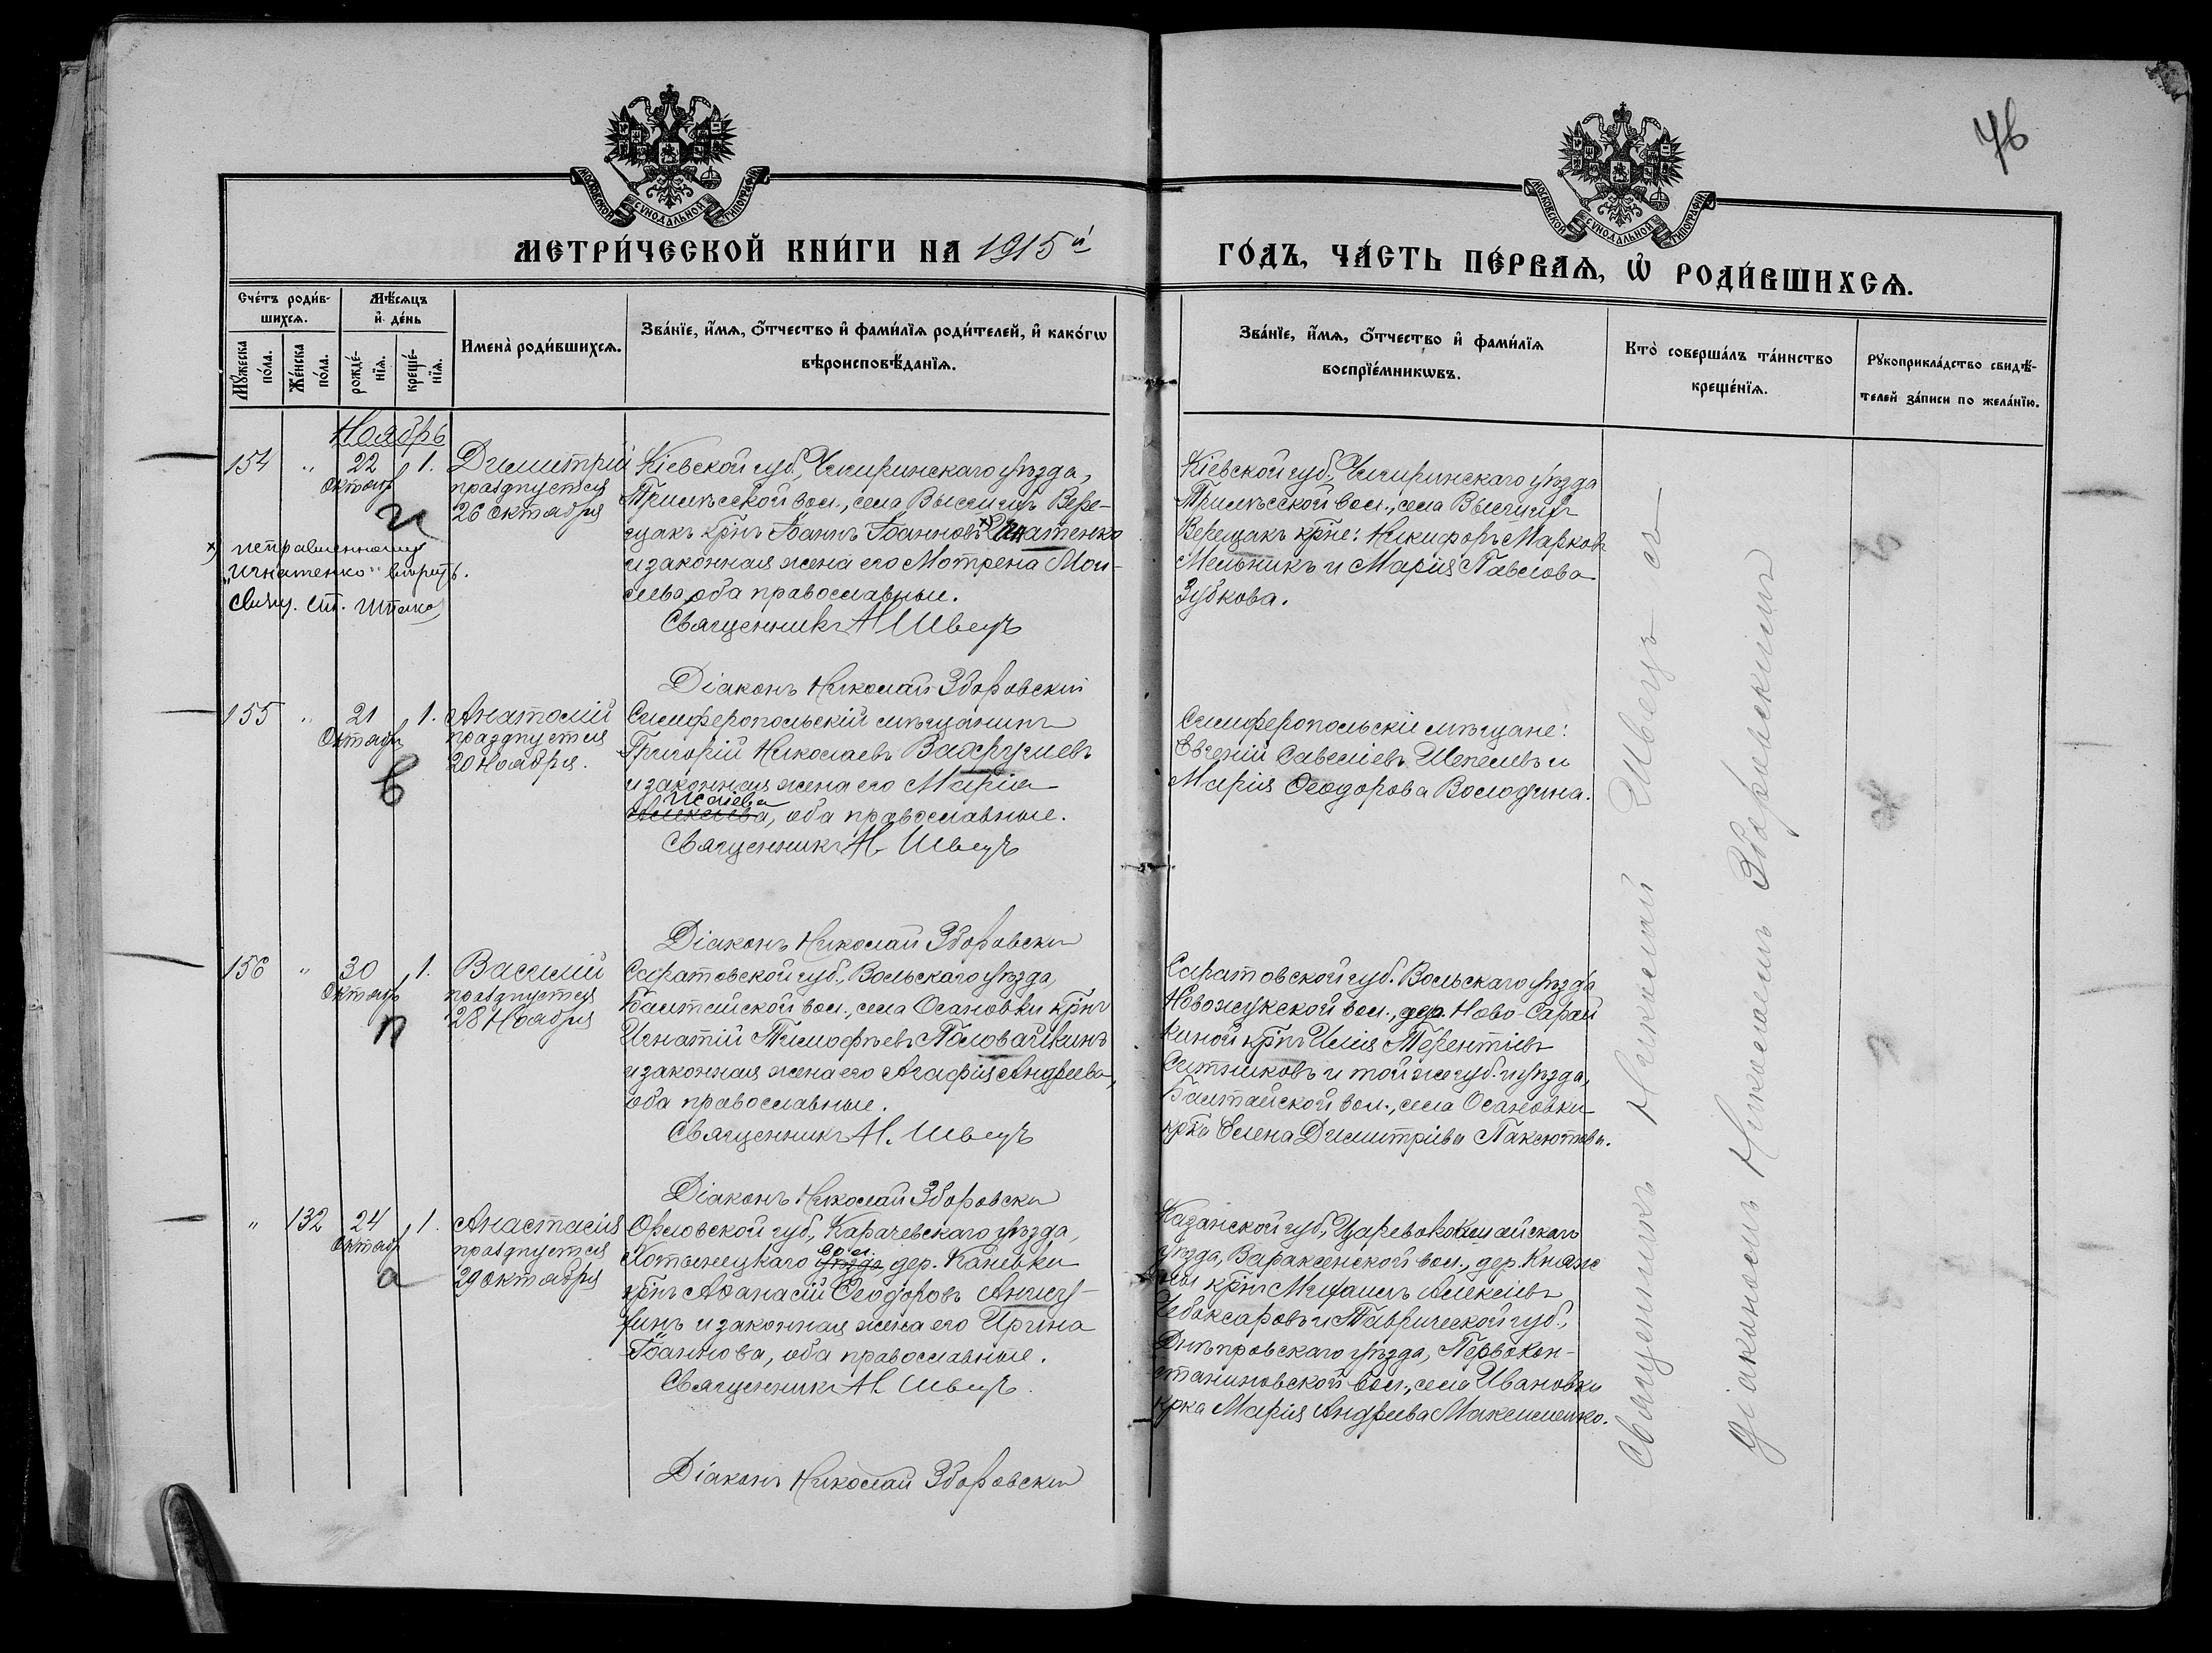 76
МОСКОВСКОЙ СѴНОДАЛЬНОЙ ТИПОГРАФІИ
МОСКОВСКОЙ СѴНОДАЛЬНОЙ ТИПОГРАФІИ
МЕТРИ́ЧЕСКОЙ КНИ́ГИ НА 1915й
ГО́ДЪ, ЧА́СТЬ ПЕ́РВАѦ, Ѽ РОДИ́ВШИХСѦ.
Сче́тъ роди́в-
шихсѧ.
Мꙋ́жеска
по́ла.
Же́нска
по́ла.
Мѣ́сѧцъ
и҆ де́нь
рожде́-
нїѧ.
креще́-
нїѧ.
Имена̀ роди́вшихсѧ.
Зва́нїе, и҆́мѧ, ѻ҆́тчество и҆ фами́лїѧ роди́телей, и҆ како́гѡ
вѣроисповѣ́данїѧ.
Зва́нїе, и҆́мѧ, ѻ҆́тчество и҆ фами́лїѧ
воспрїе́мникѡвъ.
Кто̀ соверша́лъ та́инство
креще́нїѧ.
Рꙋкоприкла́дство свидѣ́-
телей за́писи по жела́нїю.
Ноябрь
154 " 22 1. Димитрій
Октябр празднуется
26 Октября
и
Кіевской губ., Чигиринскаго уѣзда,
Тримѣсской вол., села Вере-
щакъ крнъ Іоаннъ Іоанновъ ×Игнатенко
и законная жена его Мотрена Мои-
сеева, оба православные.
Священникъ Н Швецъ
Діаконъ Николай Зборовскій
× исправленному
"Игнатенко" вѣрить.
Свящ.
Кіевской губ., Чигиринскаго уѣзда
Тримѣсской вол., села
Верещакъ крне: Никифоръ Марковъ
Мельникъ и Марія Павлова
Зубкова.
155 " 21 1. Анатолій
Октябр празднуется
20 Ноября.
в
Симферопольскій мѣщанинъ
Григорій Николаевъ Вахрушевъ
и законная жена его Марія
Исаіева
Алексѣева, оба православные.
Священникъ Н. Швецъ
Діаконъ Николай Зборовскій
Симферопольскіе мѣщане:
Евгеній Савеліевъ Шепелевъ и
Марія Ѳеодорова Володина.
156 " 30 1. Василій
Октябр празднуется
28 Ноября
п
Саратовской губ., Вольскаго уѣзда,
Балтайской вол., села Осановки крнъ
Игнатій Тимофѣевъ Половайкинъ
и законная жена его Агафія Андреева,
оба православные.
Священникъ Н. Швецъ
Діаконъ Николай Зборовскій
Саратовской губ. Вольскаго уѣзда
Новожукской вол., дер. Ново-Сарай
киной крнъ Илія Терентіевъ
Ситниковъ и той же губ. и уѣзда,
Балтайской вол., села Осановки
крка Елена Димитріева Паксютова.
" 132 24 1. Анастасія
Октябр празднуется
29 Октября
а
Орловской губ., Карачевскаго уѣзда,
вол.
Хотынецкаго уѣзда, дер. Каневки
крнъ Аѳанасій Ѳеодоровъ
и законная жена его Ирина
Іоаннова, оба православные.
Священникъ Н. Швецъ.
Діаконъ Николай Зборовскій
Казанской губ., Царевококшайскаго
уѣзда, Вараксинской вол., дер. Княж
ны крнъ Михаилъ Алексіевъ
Чебоксаровъ и Таврической губ.,
Днѣпровскаго уѣзда, Первокон-
стантиновской вол., села Ивановки
крка Марія Андреева Максименко.
Священникъ Николай Швецъ съ
діакономъ Николаемъ Зборовскимъ